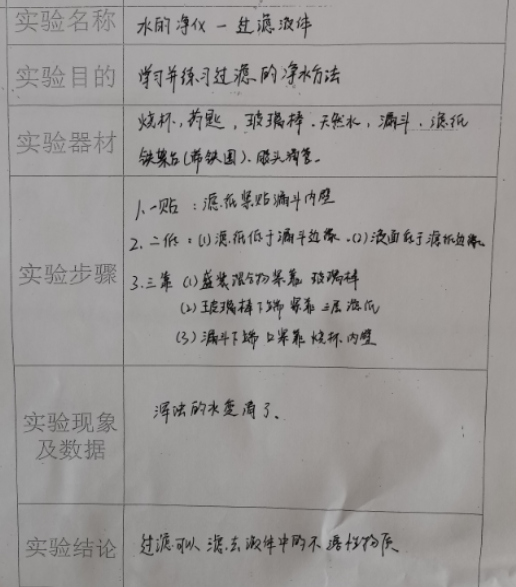 实验名称 水的净化 — 过滤液体
实验目的 学习并练习过滤的净水方法
实验器材 烧杯,药匙,玻璃棒.天然水,漏斗.滤纸
铁架台(带铁圈).胶头滴管.
实验步骤
1.一贴:滤纸紧贴漏斗内壁
2.二低:(1)滤纸低于漏斗边缘.(2)液面低于滤纸边缘.
3.三靠 (1)盛装混合物紧靠 玻璃棒
(2)玻璃棒下端紧靠三层滤纸
(3)漏斗下端口紧靠烧杯内壁
实验现象
及数据
浑浊的水变清了、
实验结论 过滤可以滤去液体中的不溶性物质